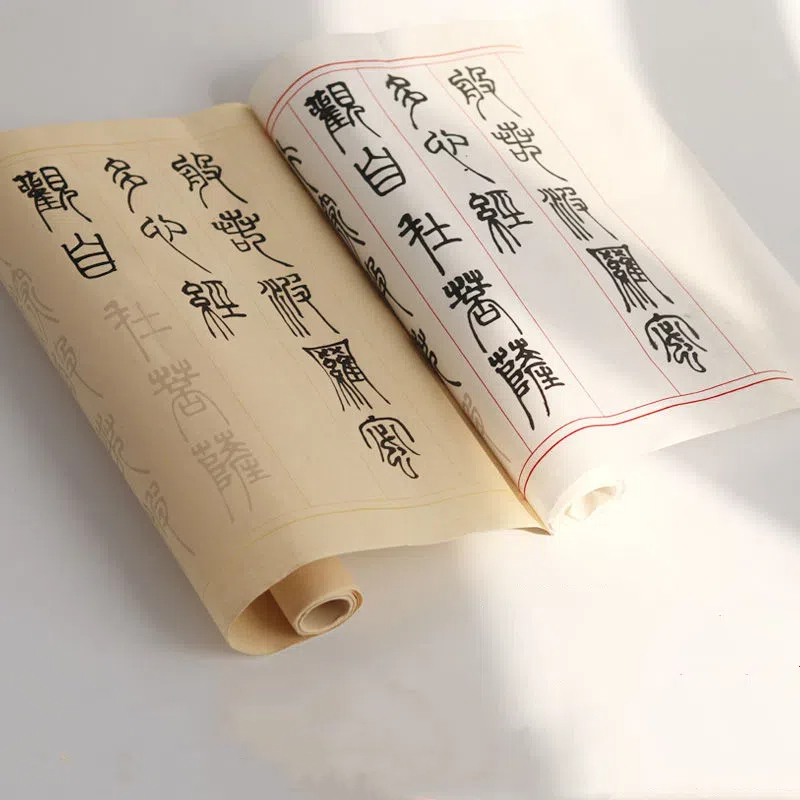 般若波羅蜜
多心經
觀自在菩薩
般若波羅蜜
多心經
觀自在菩薩